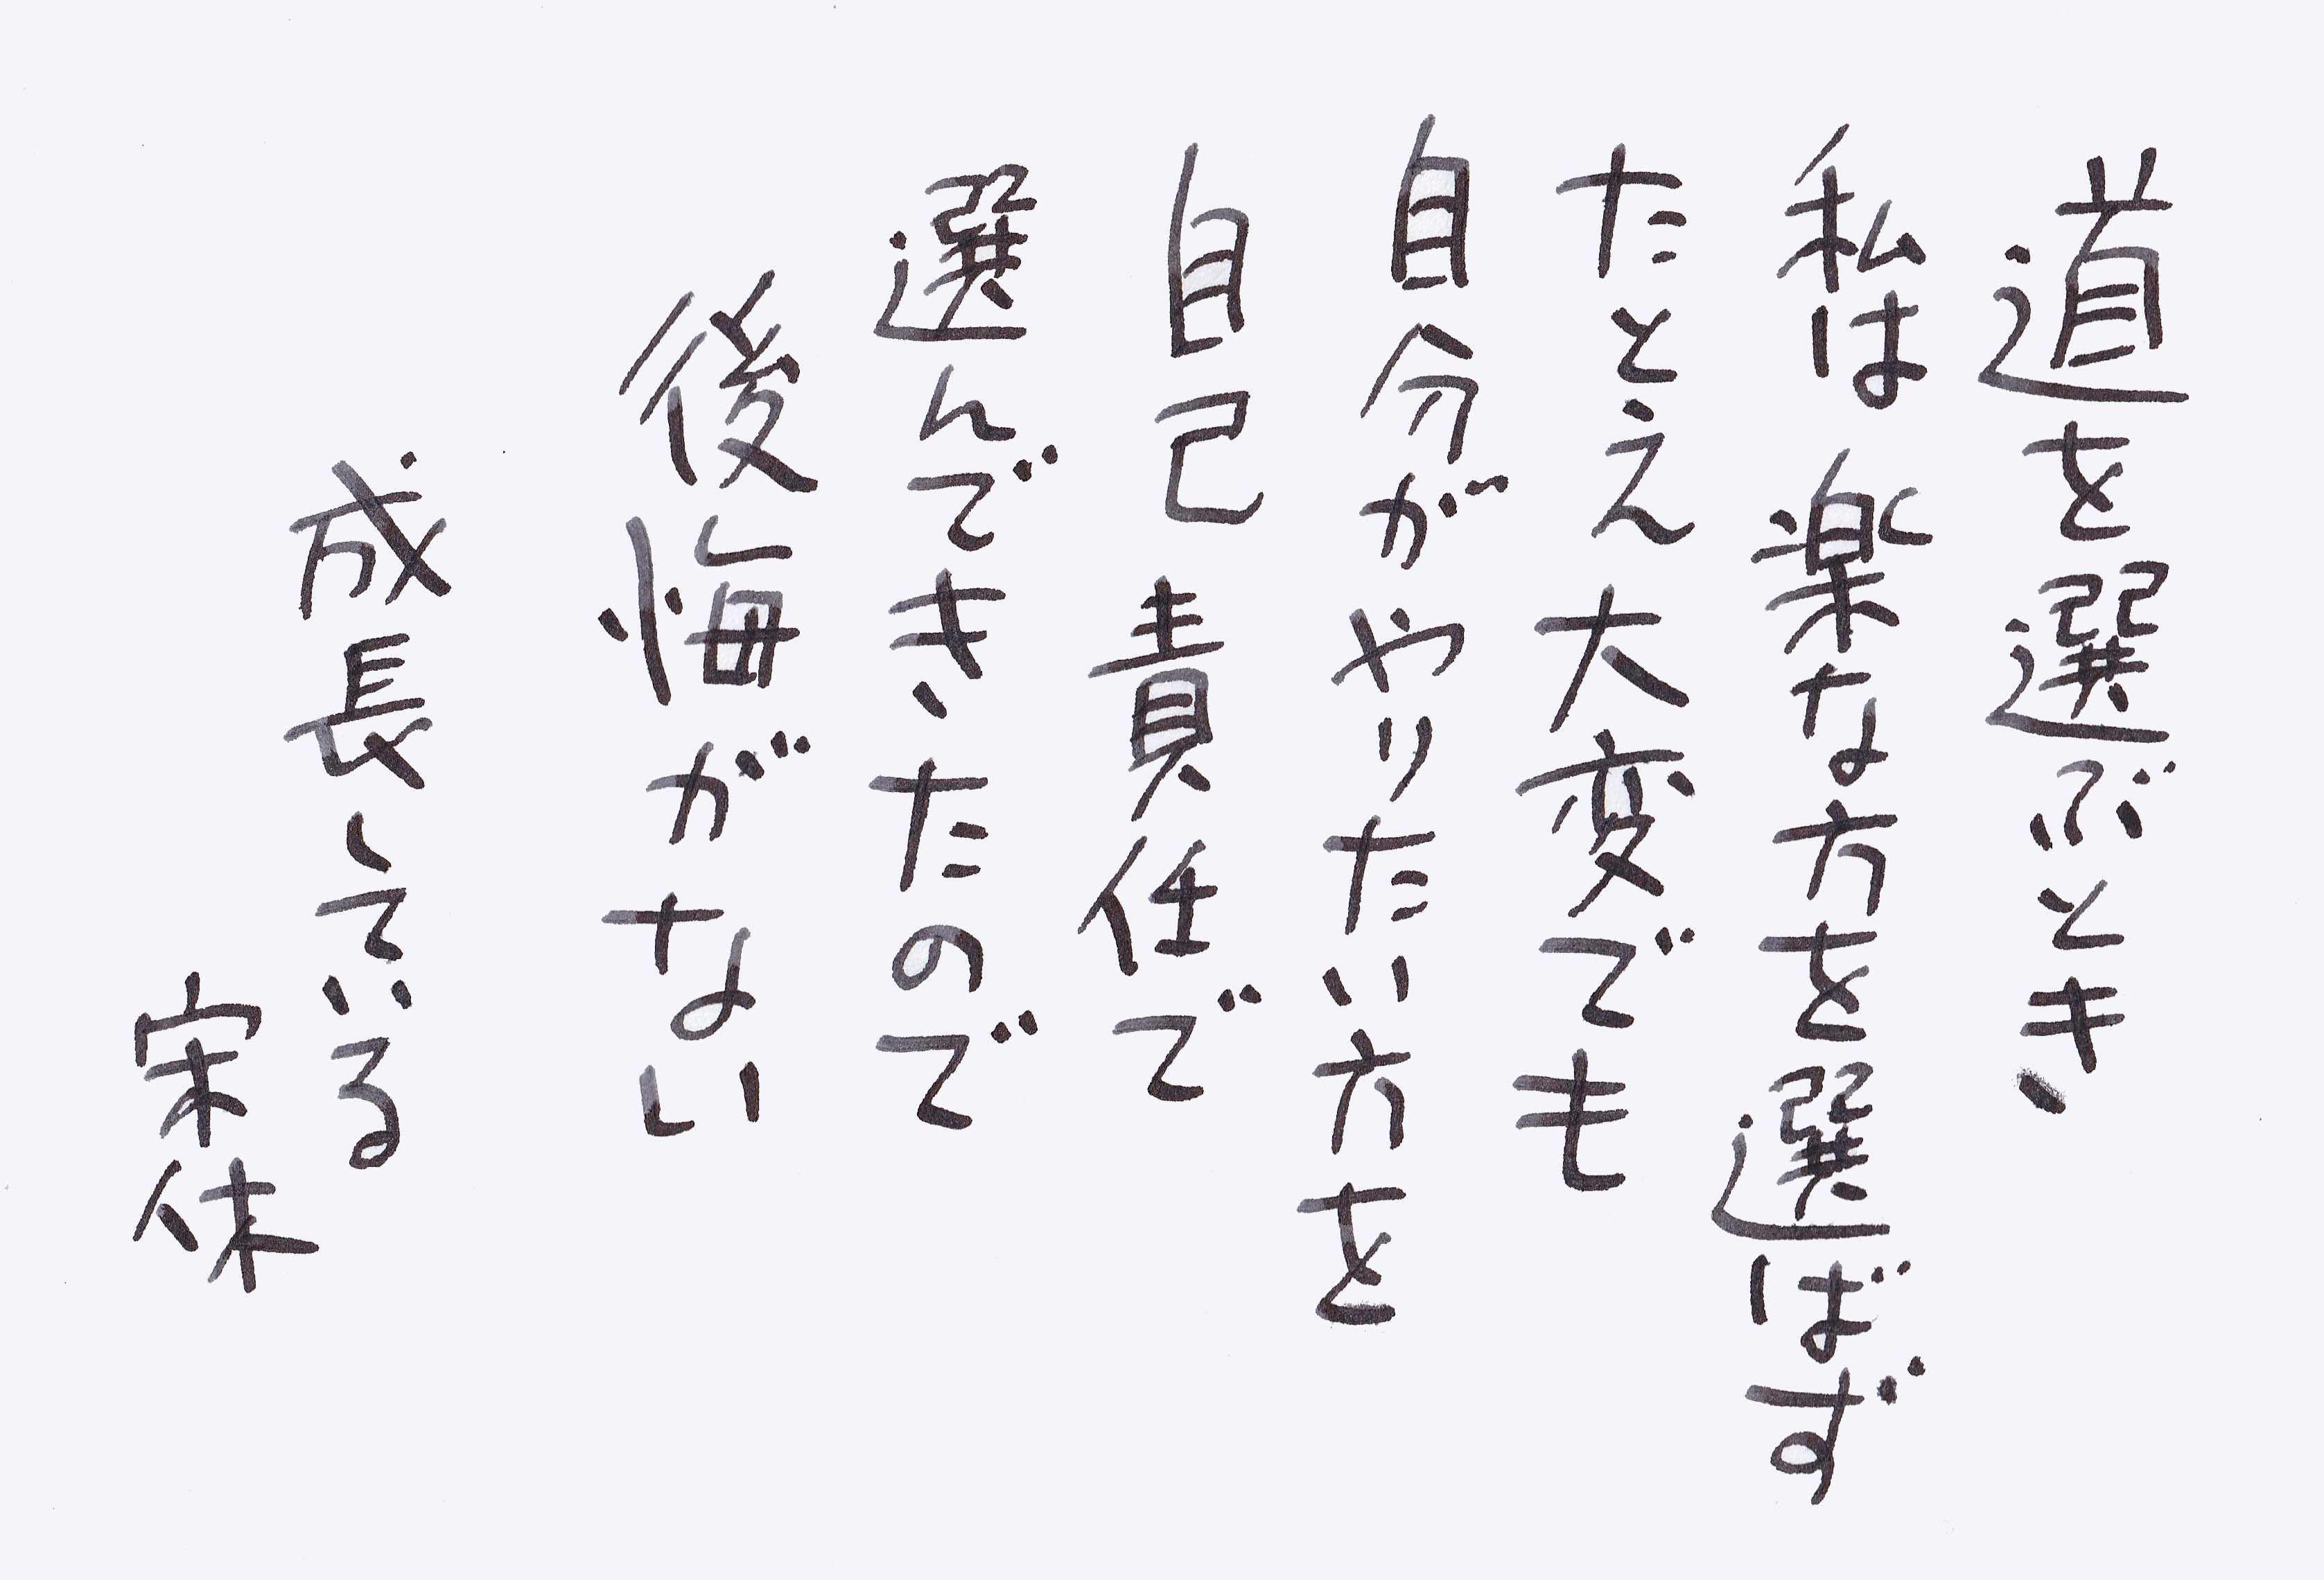 道を選ぶとき、
私は楽な方を選ばず
たとえ大変でも
自分がやりたい方を
自己責任で
選んできたので
後悔がない
成長している
宋休